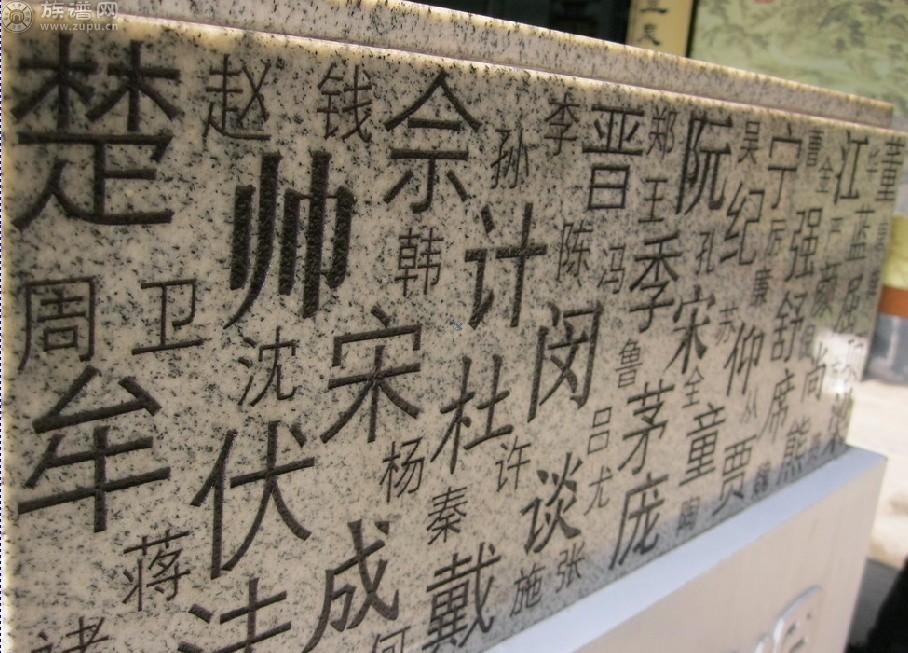 族谱网
www.zupu.cn
楚 赵 钱 佘 孙 李 晋 郑 阮 吴 宁 曹 江 华 董
帅 韩 计 陈 冯 王 季 孔 纪 厉 强 金 严 蓝
周 卫 沈 宋 杜 闵 鲁 宋 苏 仰 舒 颜
牟 伏 杨 许 吕 茅 全 童 丛 席 尚
蒋 成 秦 谈 尤 庞 陶 贾 熊
诸 法 何 戴 施 张